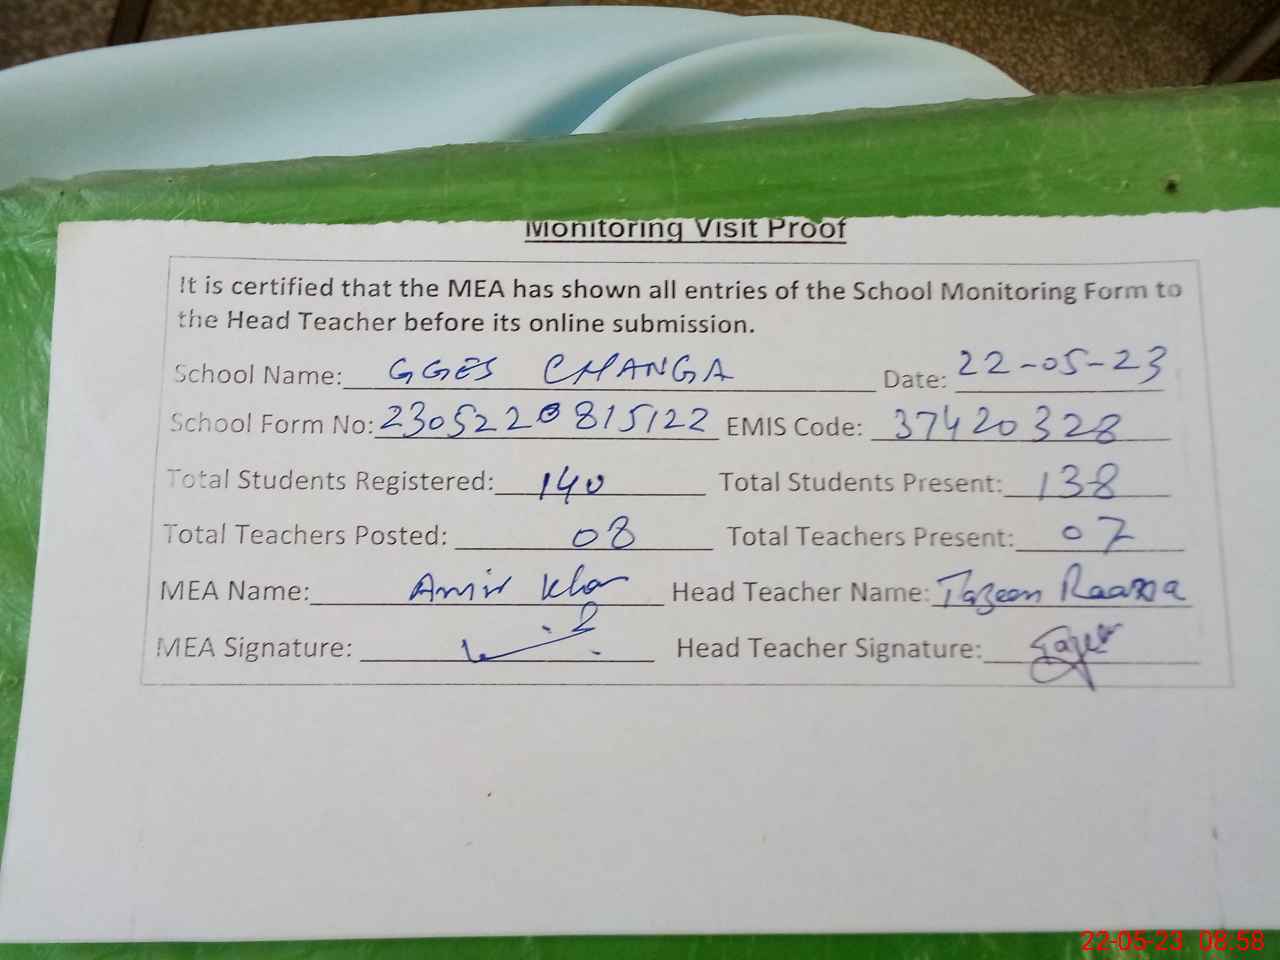 Monitoring Visit Proof
It is certified that the MEA has shown all entries of the School Monitoring Form to
the Head Teacher before its online submission.
School Name: GGES CHANGA Date: 22-05-23
School Form No: 2305220815122 EMIS Code: 37420328
Total Students Registered: 140 Total Students Present: 138
Total Teachers Posted: 08 Total Teachers Present: 07
MEA Name: Amir Khan Head Teacher Name: Tazeen
MEA Signature: Head Teacher Signature:
22-05-23 08:58